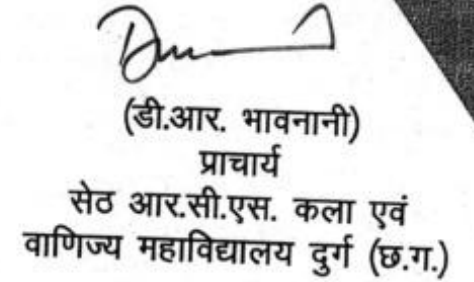 (डी.आर. भावनानी)
प्राचार्य
सेठ आर.सी.एस. कला एवं
वाणिज्य महाविद्यालय दुर्ग (छ.ग.)